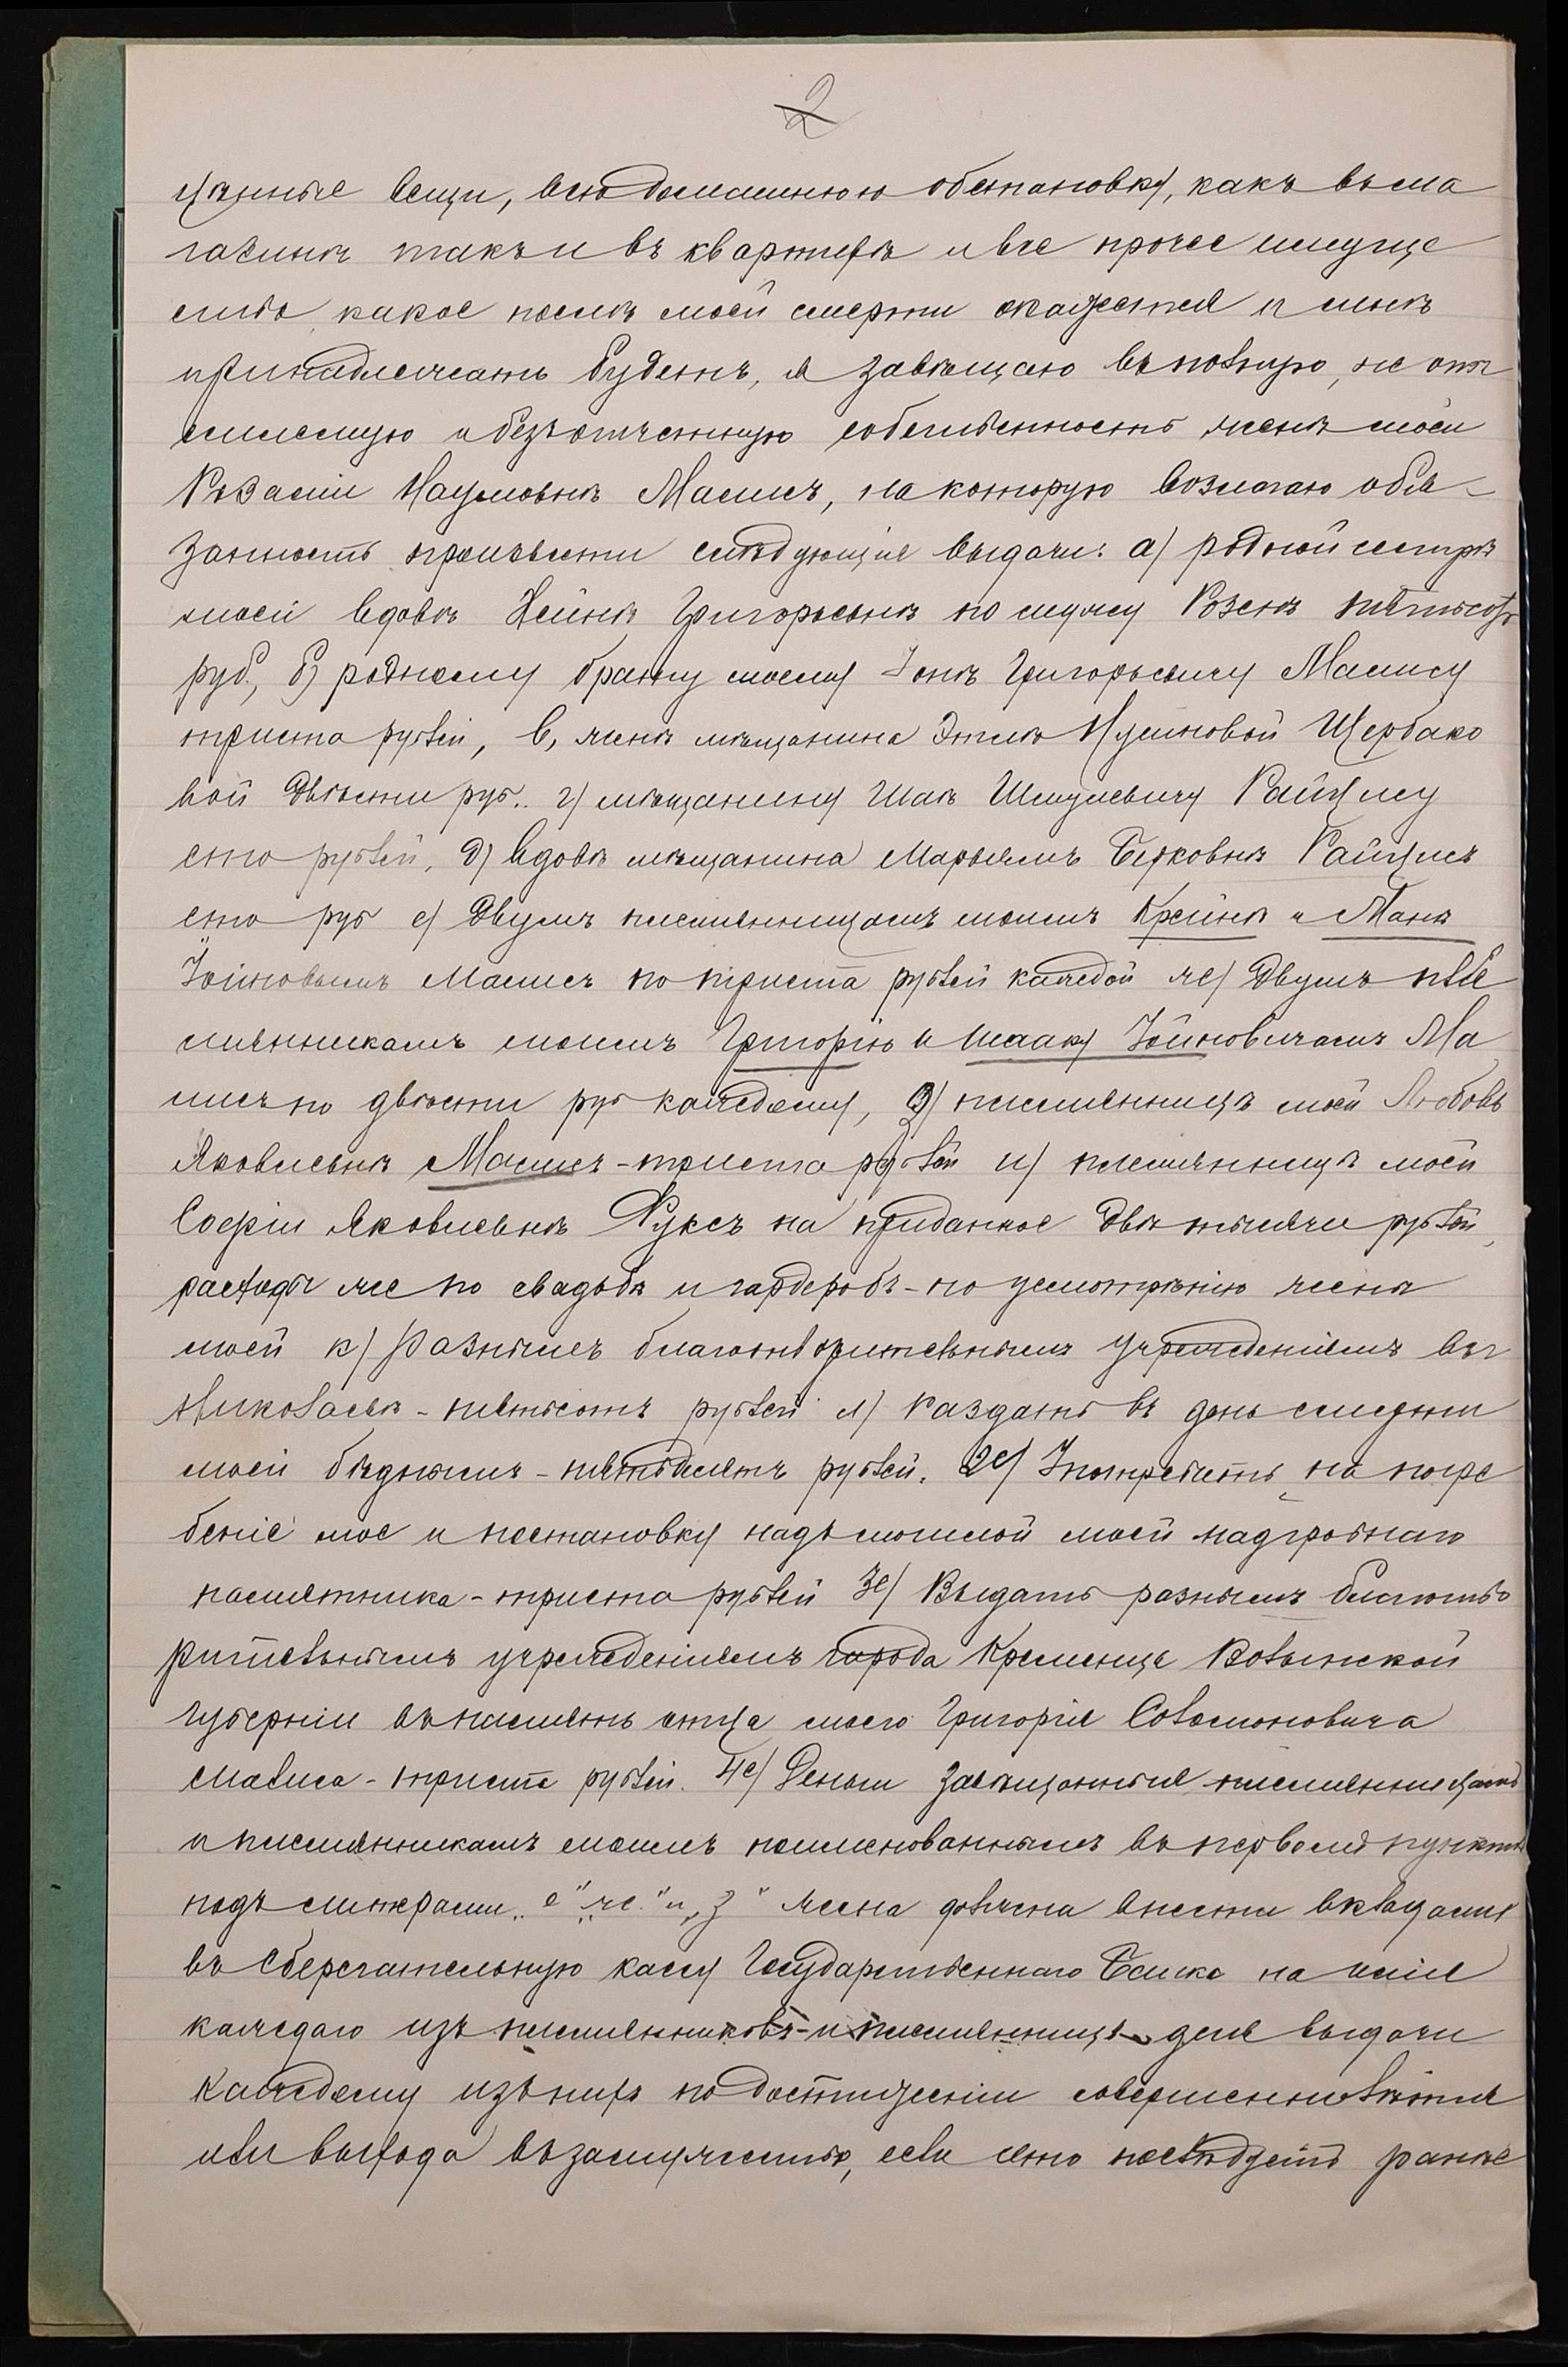 2
цѣнные вещи, всю домашнюю обстановку, какъ въ ма
газинѣ такъ и въ квартирѣ и все прочее имуще
ство какое послѣ моей смерти окажется и мнѣ
принадлежать будетъ, я завѣщаю въ полную, не отъ
емлемую и безъотчетную собственность женѣ моей
Розаліи Наумовнѣ Малисъ, на которую возлагаю обя-
занность произвести слѣдующія выдачи: а) родной сестрѣ
моей вдовѣ Хейнѣ Григорьевнѣ по мужу Розенъ пятьсотъ
руб., б) родному брату моему Іонѣ Григорьевичу Малису
триста рублей, в, женѣ мѣщанина Этлѣ Нусиновой Щербако
вой двѣсти руб.. г) мѣщанину Шаѣ Шмулевичу Райцису
сто рублей, д) вдовѣ мѣщанина Марьямъ Берковнѣ Райцисъ
сто руб е) двумъ племянницамъ моимъ Крейнѣ и Манѣ
Іойновымъ Малисъ по триста рублей каждой ж) двумъ пле
мянникамъ моимъ Григорію и Исааку Іойновичамъ Ма
лисъ по двѣсти руб каждому, з) племянницѣ моей Любовь
Яковлевнѣ Малисъ - триста рублей и) племянницѣ моей
Софіи Яковлевнѣ Фуксъ на приданное двѣ тысячи рублей,
расходы же по свадьбѣ и гардеробъ - по усмотрѣнію жены
моей к) разнымъ благотворительнымъ учрежденіямъ въ г
Николаевѣ - пятьсотъ рублей л) раздать въ день смерти
моей бѣднымъ - пятьдесятъ рублей. 2е) Употребить на погре
беніе мое и постановку надъ могилой моей надгробнаго
памятника - триста рублей 3е) Выдать разнымъ благотво
рительнымъ учрежденіямъ города Кременца Волынской
губерніи въ память отца моего Григорія Соломоновича
Малиса - триста рублей. 4е) Деньги завѣщанныя племянницамъ
и племянникамъ моимъ поименованнымъ въ первомъ пунктѣ
подъ литерами „е" „ж" и „з" жена должна внести вкладами
въ сберегательную кассу Государственнаго Банка на имя
каждаго изъ племянниковъ и племянницъ для выдачи
каждому изъ нихъ по достиженіи совершеннолѣтія
или выхода въ замужество, если сіе послѣдуетъ ранѣе